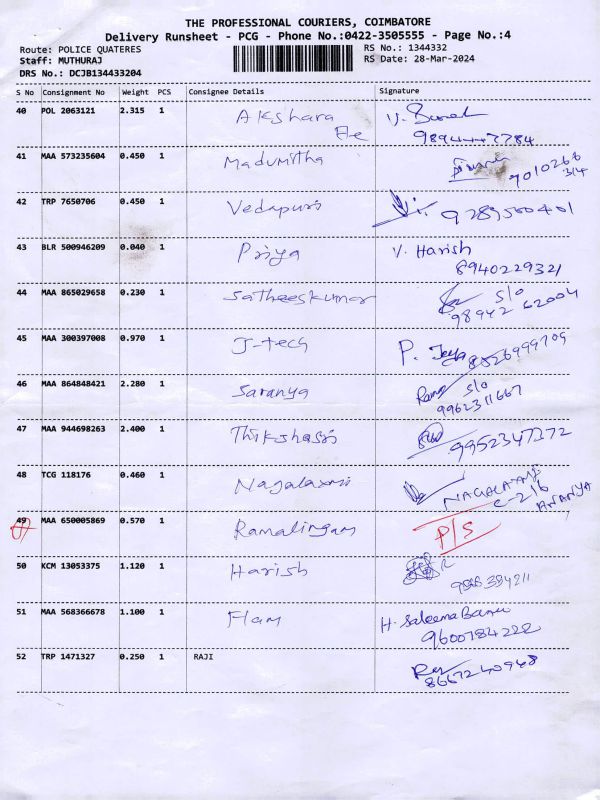 THE PROFESSIONAL COURIERS, COIMBATORE
Delivery Runsheet - PCG - Phone No.:0422-3505555 - Page No.:4
Route: POLICE QUATERES RS No.: 1344332
Staff: MUTHURAJ RS Date: 28-Mar-2024
DRS No.: DCJB134433204
S No Consignment No Weight PCS Consignee Details Signature
40 POL 2063121 2.315 1 Akshara
41 MAA 573235604 0.450 1 Madumitha
9010266
314
42 TRP 7650706 0.450 1 Vedapuri
43 BLR 500946209 0.040 1 Priya V. Harish
8940229321
44 MAA 865029658 0.230 1 Satheeskumar S/o
98942 62004
45 MAA 300397008 0.970 1 J-tech P. Jeya 8526999709
46 MAA 864848421 2.280 1 Saranya S/o
9962311667
47 MAA 944698263 2.400 1 Thikshasri 9952347372
48 TCG 118176 0.460 1 Nagalaxmi
C-216
ANANYA
49 MAA 650005869 0.570 1 Ramalingam P/S
50 KCM 13053375 1.120 1 Harish
51 MAA 568366678 1.100 1 Flam H. Saleema Banu
9600784222
52 TRP 1471327 0.250 1 RAJI
8667240948